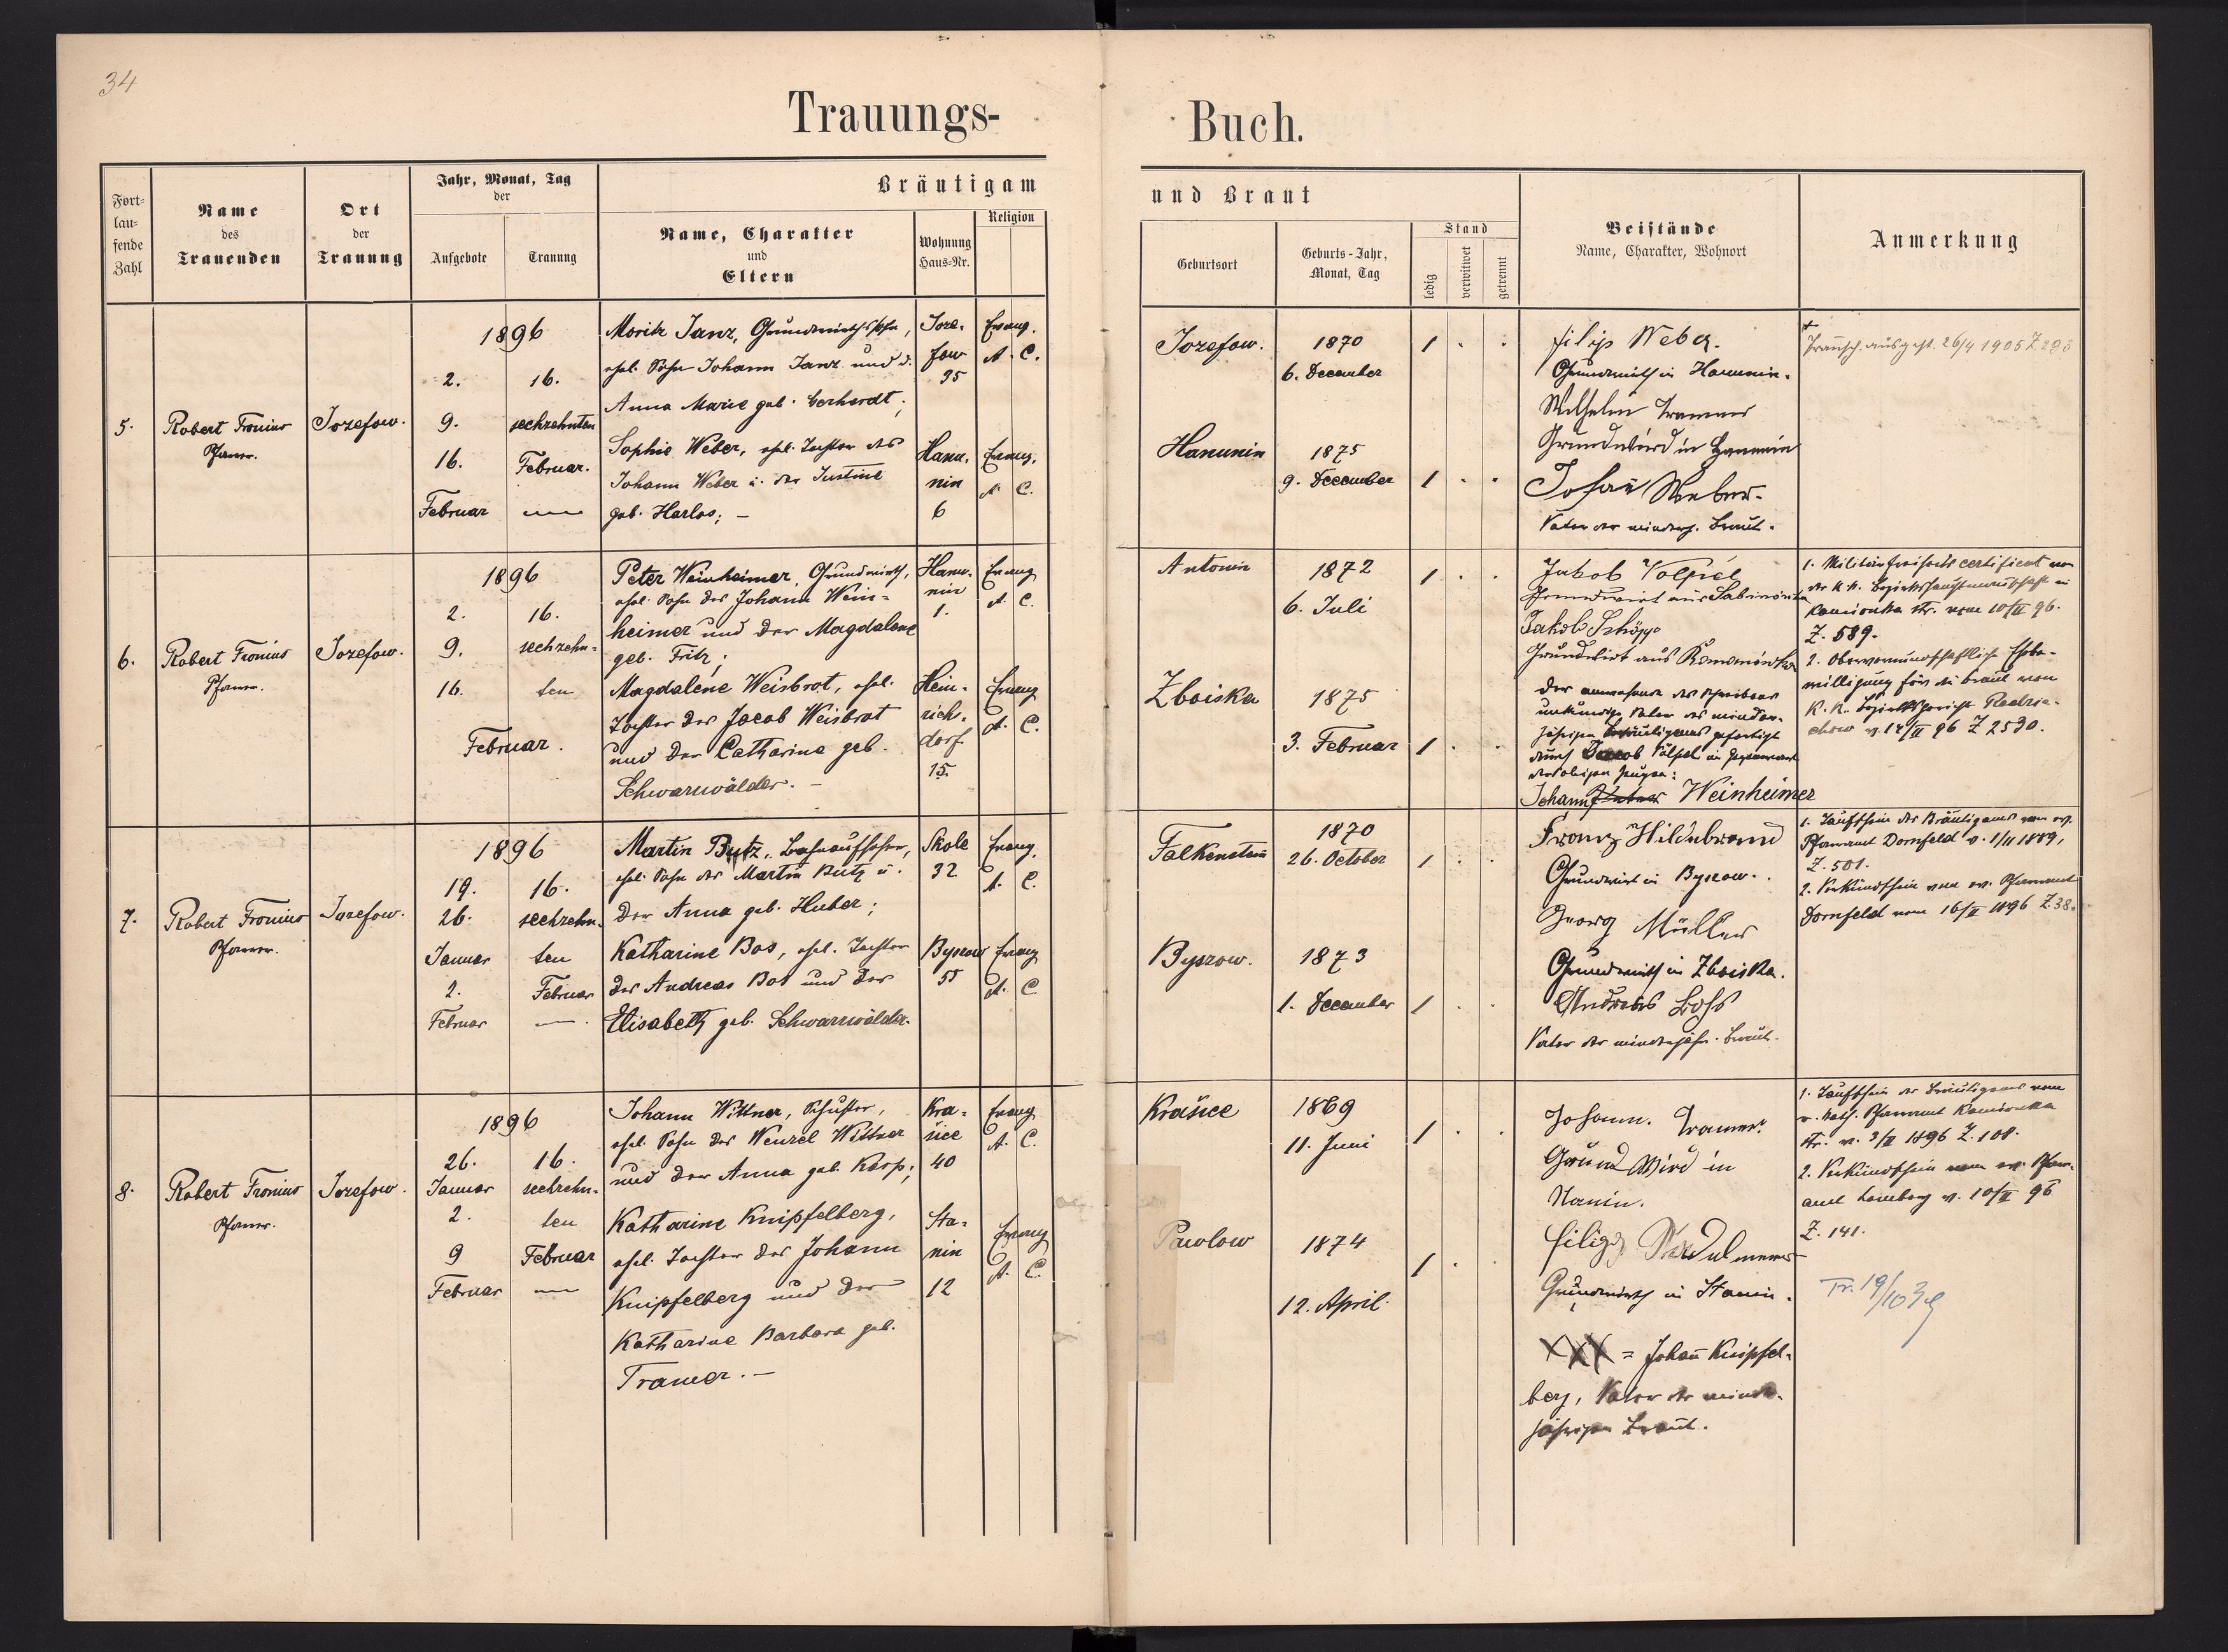 34
Trauungs-
Buch.
Fort-
lau-
fende
Zahl
Name
des
Trauenden
Ort
der
Trauung
Jahr, Monat, Tag
der
Aufgebote
Trauung
Bräutigam
Name, Charakter
und
Eltern
Wohnung
Haus-Nr.
Religion
und Braut
Geburtsort
Geburts-Jahr,
Monat, Tag
Stand
ledig
verwitwet
getrennt
Beistände
Name, Charakter, Wohnort
Anmerkung
5.
Robert Fronius
Pfarrer.
Jozefow.
1896
2.
9.
16.
Februar
16.
sechzehnten
Februar.
Moritz Janz, Grundwirthssohn,
ehel. Sohn Johann Janz und d.
Anna Marie geb. Gerhardt;
Joze-
fow
35
Evang.
A. C.
Sophie Weber, ehel. Tochter des
Johann Weber u. der Justine
geb. Harlos; –
Hanu-
nin
6
Evang.
A. C.
Jozefow.
1870
6. December
1 . .
Hanunin
1875
9. December
1 . .
filip Weber.
Grundwirth in Hanunin.
Wilhelm Trammer
Grundwird in Hanunin
Johan Weber.
Vater der minderj. Braut.
Trauusch. ausgest. 26/4 1905 Z 283
6.
Robert Fronius
Pfarrer.
Jozefow.
1896
2.
9.
16.
16.
sechzehn-
ten
Februar.
Peter Weinheimer, Grundwirth,
ehel. Sohn des Johann Wein-
heimer und der Magdalene
geb. Fritz;
Hanu-
nin
1.
Evang
A. C.
Magdalene Weisbrot, ehel.
Tochter des Jacob Weisbrot
und der Catharina geb.
Schwarzwälder. –
Hein-
richs-
dorf
15.
Evang
A. C.
Antonin
1872
6. Juli
1 . .
Zboiska
1875
3. Februar
1 . .
Jakob Volpel
Grundwirt aus Sabinówka
Jakob Schöpp
Grundwirt aus Romanówka
Der anwesende des Schreibens
unkundige Vater des minder-
jährigen Bräutigams gefertigt
durch Jacob Völpel in Gegenwart
der obigen Zeugen:
Johann Weinheimer
1. Militärfreiheits certificat von
der k. k. Bezirkshauptmannschaft in
Kamionka str. vom 10/II 96.
Z. 589.
2. Obervormundschaftliche Ehebe-
willigung für die Braut vom
k. k. Bezirksgericht Radzie-
chow v. 14/II 96 Z 2530.
7.
Robert Fronius
Pfarrer.
Jozefow.
1896
19.
26.
Januar
2.
Februar
16.
sechzehn-
ten
Februar
Martin Butz, Bahnaufseher,
ehel. Sohn des Martin Butz u.
der Anna geb. Huber;
Skole
32
Evang.
A. C.
Katharine Bos, ehel. Tochter
des Andreas Bos und der
Elisabeth geb. Schwarzwälder.
Byszow
55
Evang
A. C.
Falkenstein
1870
26. October
1 . .
Byszow.
1873
1. December
1 . .
Franz Hildebrand
Grundwirt in Byszow.
Georg Müller
Grundwirth in Zboiska.
Andreas Bohs
Vater der minderjähr. Braut.
1. Taufschein des Bräutigams vom ev.
Pfarramt Dornfeld v. 1/11 1889,
Z. 501.
2. Verkündschein vom ev. Pfarramt
Dornfeld vom 16/II 1896 Z. 38.
8.
Robert Fronius
Pfarrer.
Jozefow.
1896
26.
Januar
2.
9
Februar
16.
sechzehn-
ten
Februar
Johann Wittner, Schuster,
ehel. Sohn des Wenzel Wittner
und der Anna geb. Karp;
Kra-
śice
40
Evang
A. C.
Katharine Knipfelberg,
ehel. Tochter des Johann
Knipfelberg und der
Katharine Barbara geb.
Tramer. –
Sta-
nin
12
Evang
A. C.
Kraśice
1869
11. Juni
1 . .
Pawlow
1874
12. April.
1 . .
Johann. Tramer.
Grund Wird in
Stanin.
filipp
Grundwirth in Stanin.
XXX = Johan Knipfel-
berg, Vater der minder-
jährigen Braut.
1. Taufschein des Bräutigams vom
r. kath. Pfarramt Kamionka
str. v. 3/II 1896 Z. 108.
2. Verkündschein vom ev. Pfarr-
amt Lemberg v. 10/II 96
Z. 141.
Tr. 19/10 39